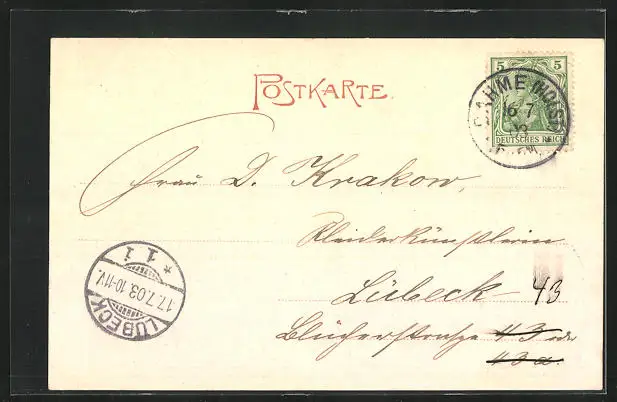 POSTKARTE
5 5
DEUTSCHES REICH
DAHME (HOLST)
16 7
03
Frau D. Krakow,
Kleiderkünstlerin
Lübeck 43
Blücherstraße 43 oder
43a.
* 1 1
17.7.03.10-11V.
LÜBECK